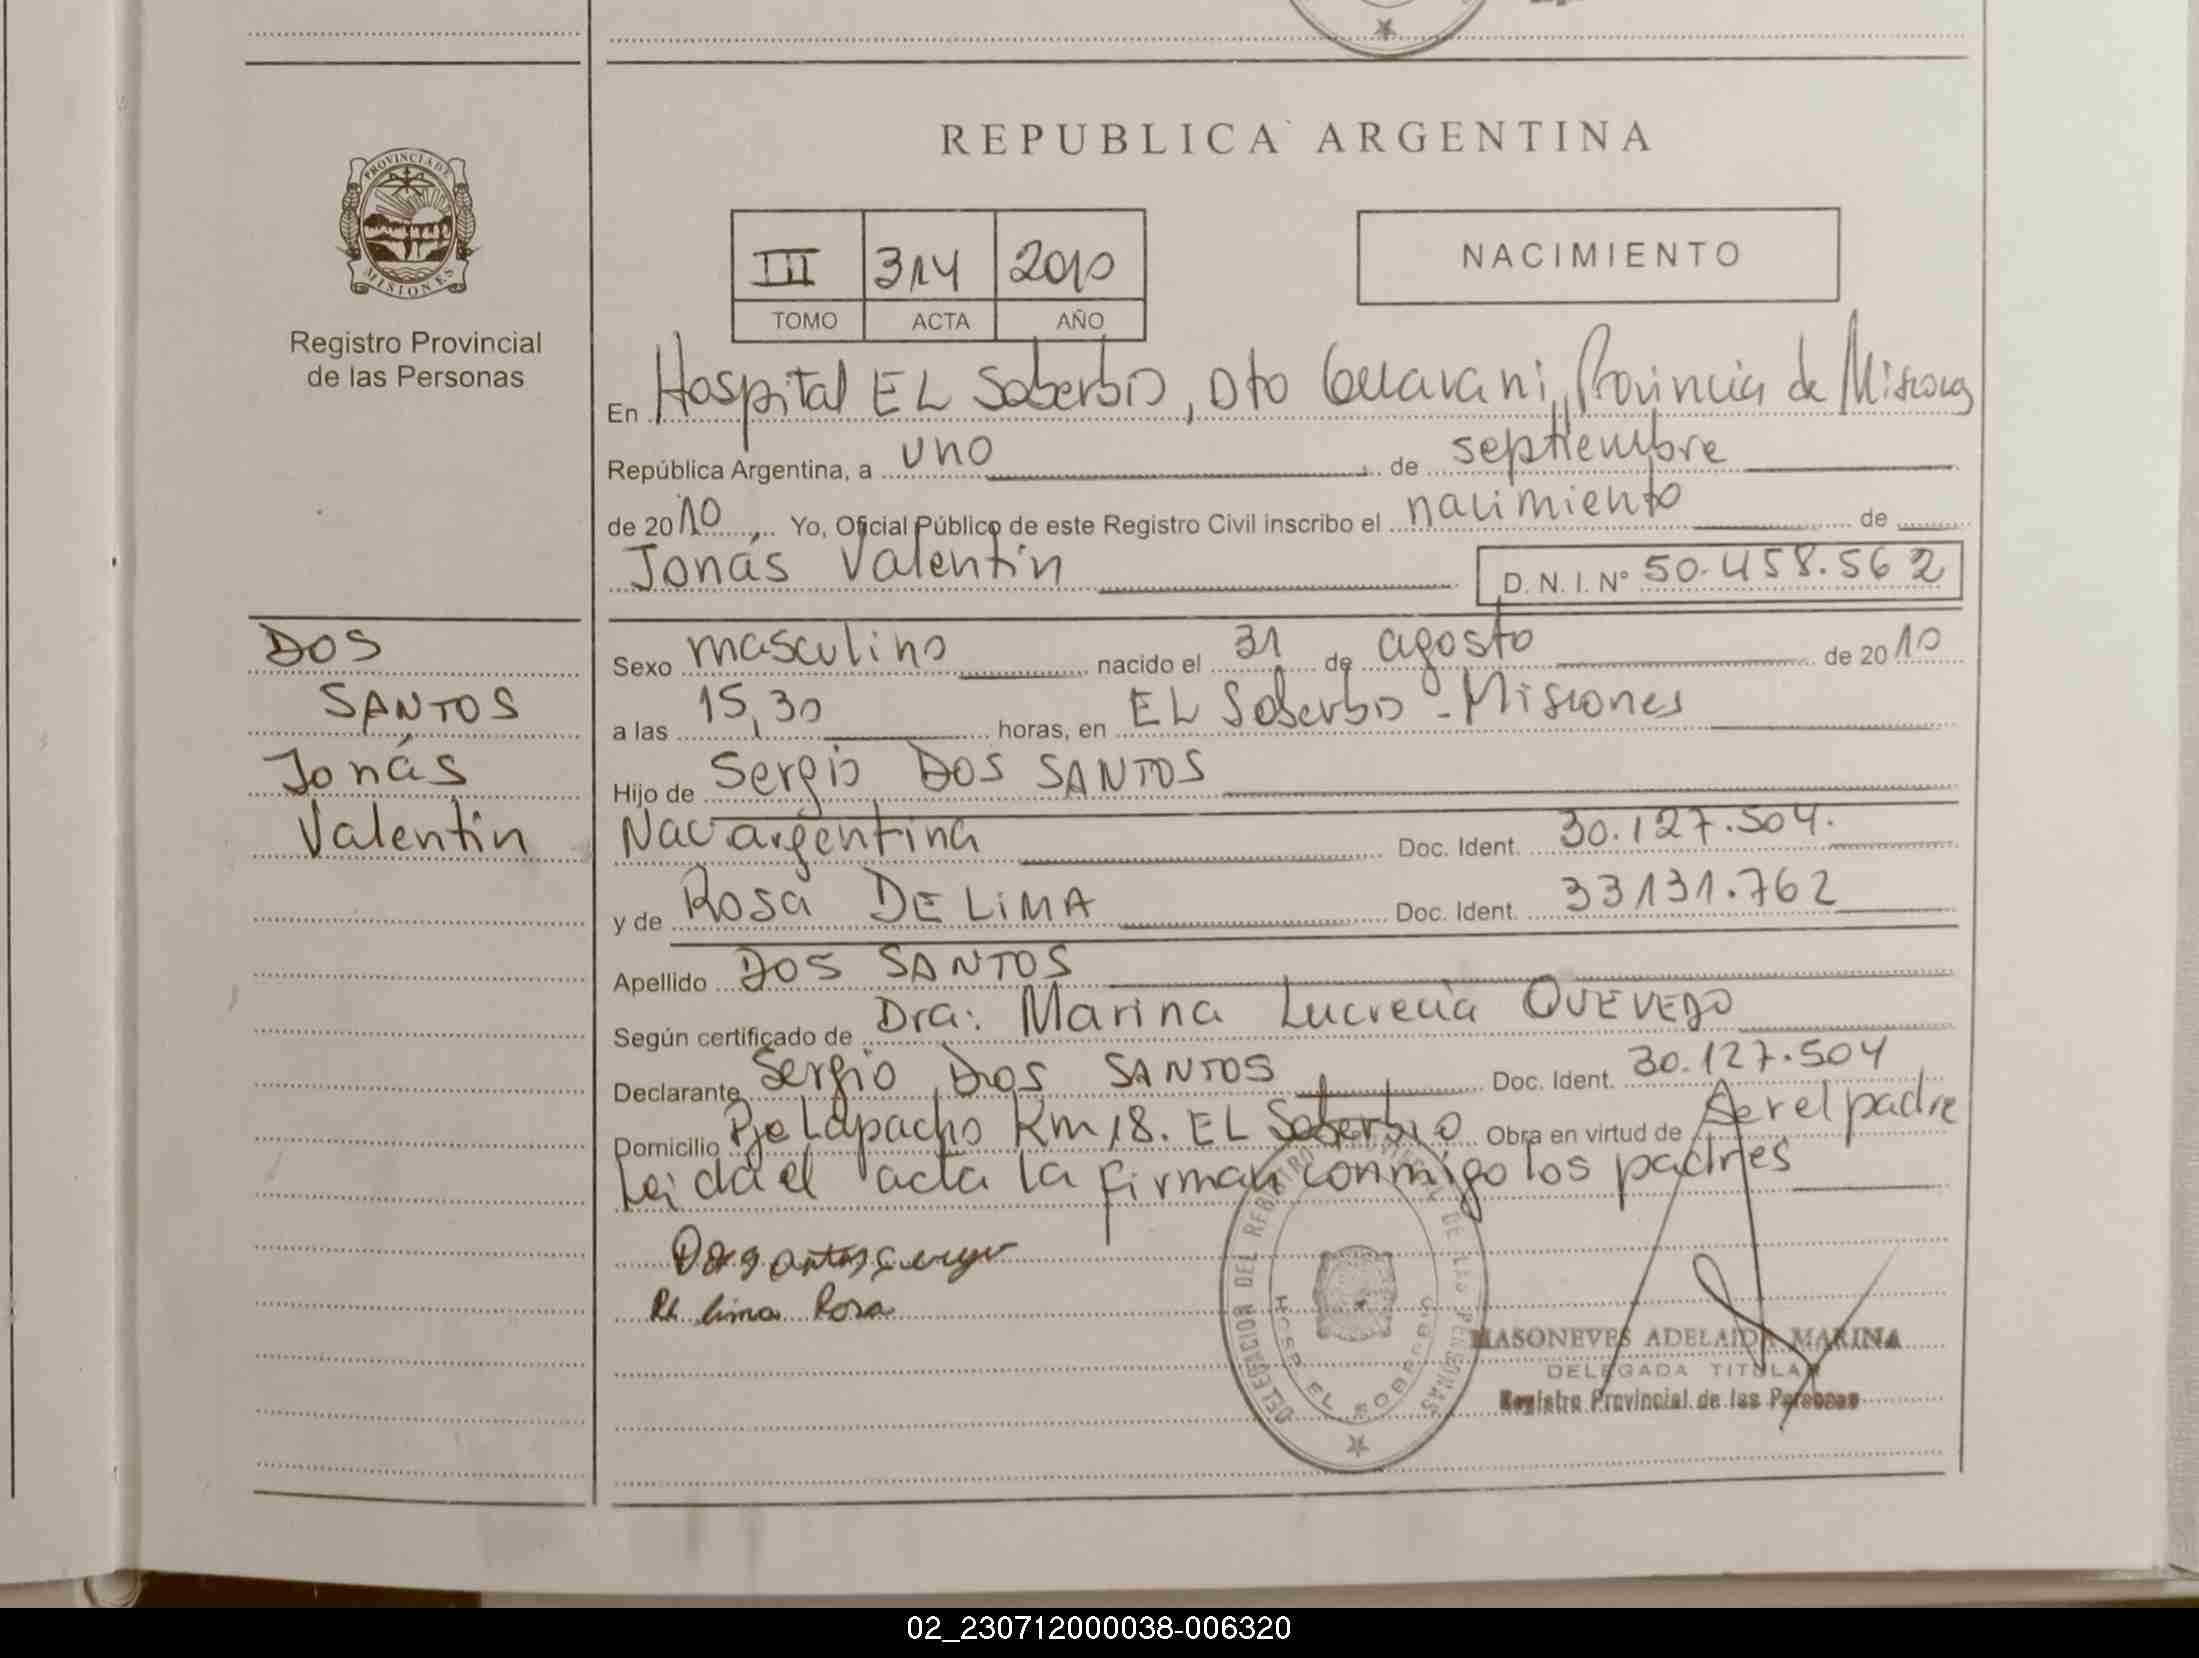 REPUBLICA ARGENTINA
PROVINCIA DE
MISIONES
Registro Provincial
de las Personas
III 314 2010
TOMO ACTA AÑO
NACIMIENTO
En Hospital EL Soberbio, Dto Guarani, Provincia de Misiones
República Argentina, a uno de septiembre
de 2010 Yo, Oficial Público de este Registro Civil inscribo el nacimiento de
Jonás Valentín D. N. I. N° 50.458.562
DOS
SANTOS
Jonás
Valentín
Sexo masculino nacido el 31 de agosto de 2010
a las 15,30 horas, en EL Soberbio - Misiones
Hijo de Sergio DOS SANTOS
Nac argentina Doc. Ident. 30.127.504.
y de Rosa DE LIMA Doc. Ident. 33131.762
Apellido DOS SANTOS
Según certificado de Dra: Marina Lucrecia QUEVEDO
Declarante Sergio Dos SANTOS Doc. Ident. 30.127.504
Domicilio Pje Lapacho Km 18. EL Soberbio Obra en virtud de Ser el padre
Leida el acta la firman conmigo los padres
Lima Rosa
DELEGACION DEL REGISTRO PROVINCIAL DE LAS PERSONAS
HOSP. EL SOBERBIO
MASONEVES ADELAIDA MARINA
DELEGADA TITULAR
Registro Provincial de las Personas
02_230712000038-006320